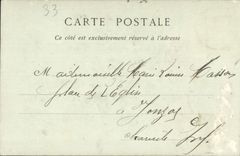 33
CARTE POSTALE
Ce côté est exclusivement réservé à l'adresse
Mademoiselle Marie Louise Masson
place de l'Eglise
à Jonzac
Charente Inf.